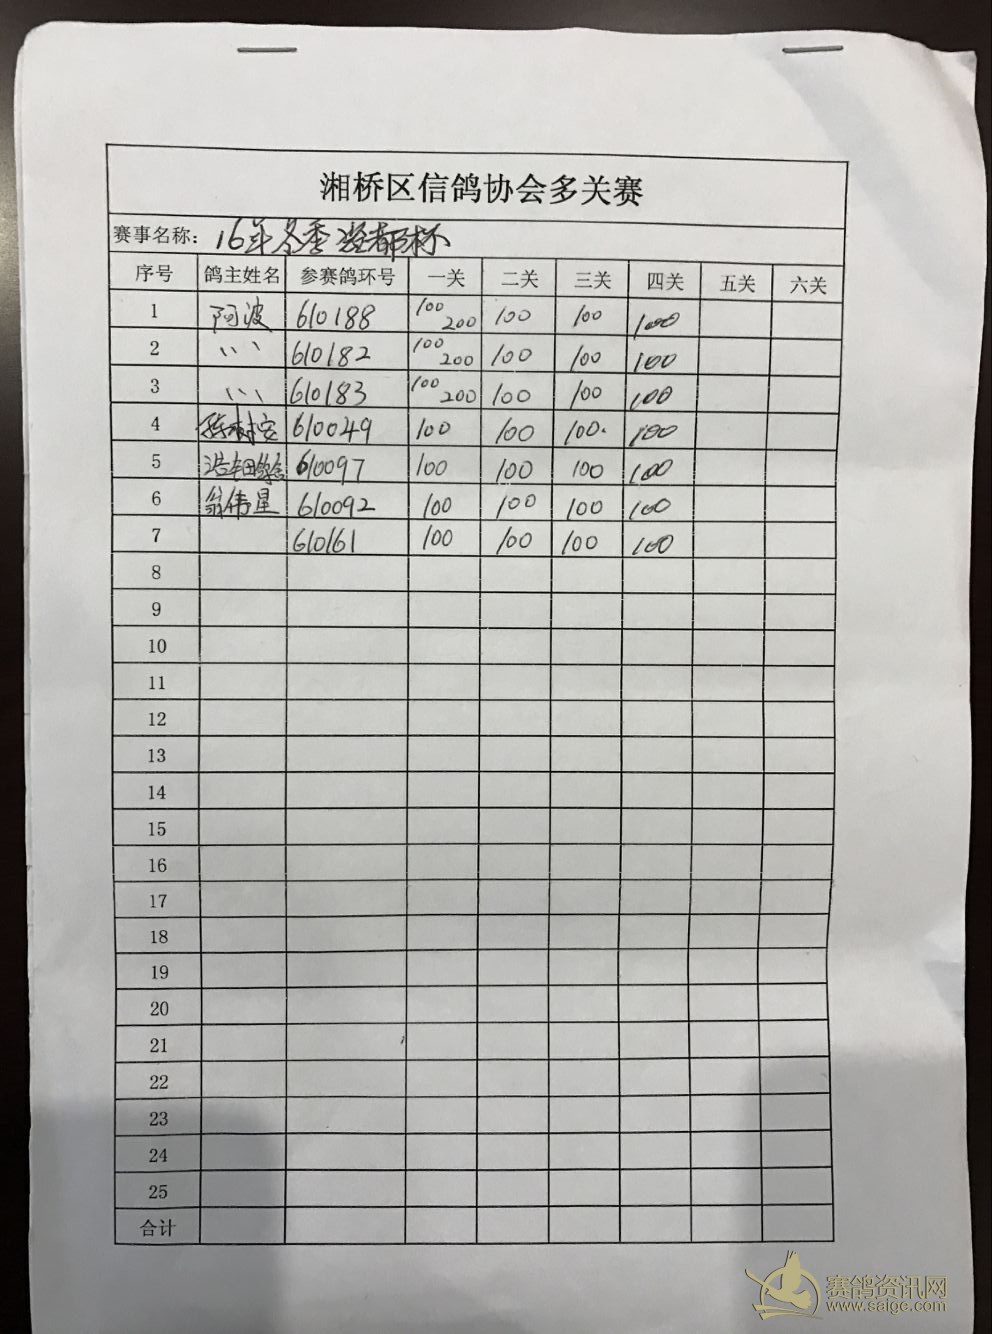 湘桥区信鸽协会多关赛
赛事名称: 16年冬季瓷都杯
序号 鸽主姓名 参赛鸽环号 一关 二关 三关 四关 五关 六关
1 阿波 610188 100 200 100 100 100
2 〃 610182 100 200 100 100 100
3 〃 610183 100 200 100 100 100
4 陈树安 610049 100 100 100. 100
5 610097 100 100 100 100
6 翁伟星 610092 100 100 100 100
7 610161 100 100 100 100
8
9
10
11
12
13
14
15
16
17
18
19
20
21
22
23
24
25
合计
赛鸽资讯网
www.saige.com